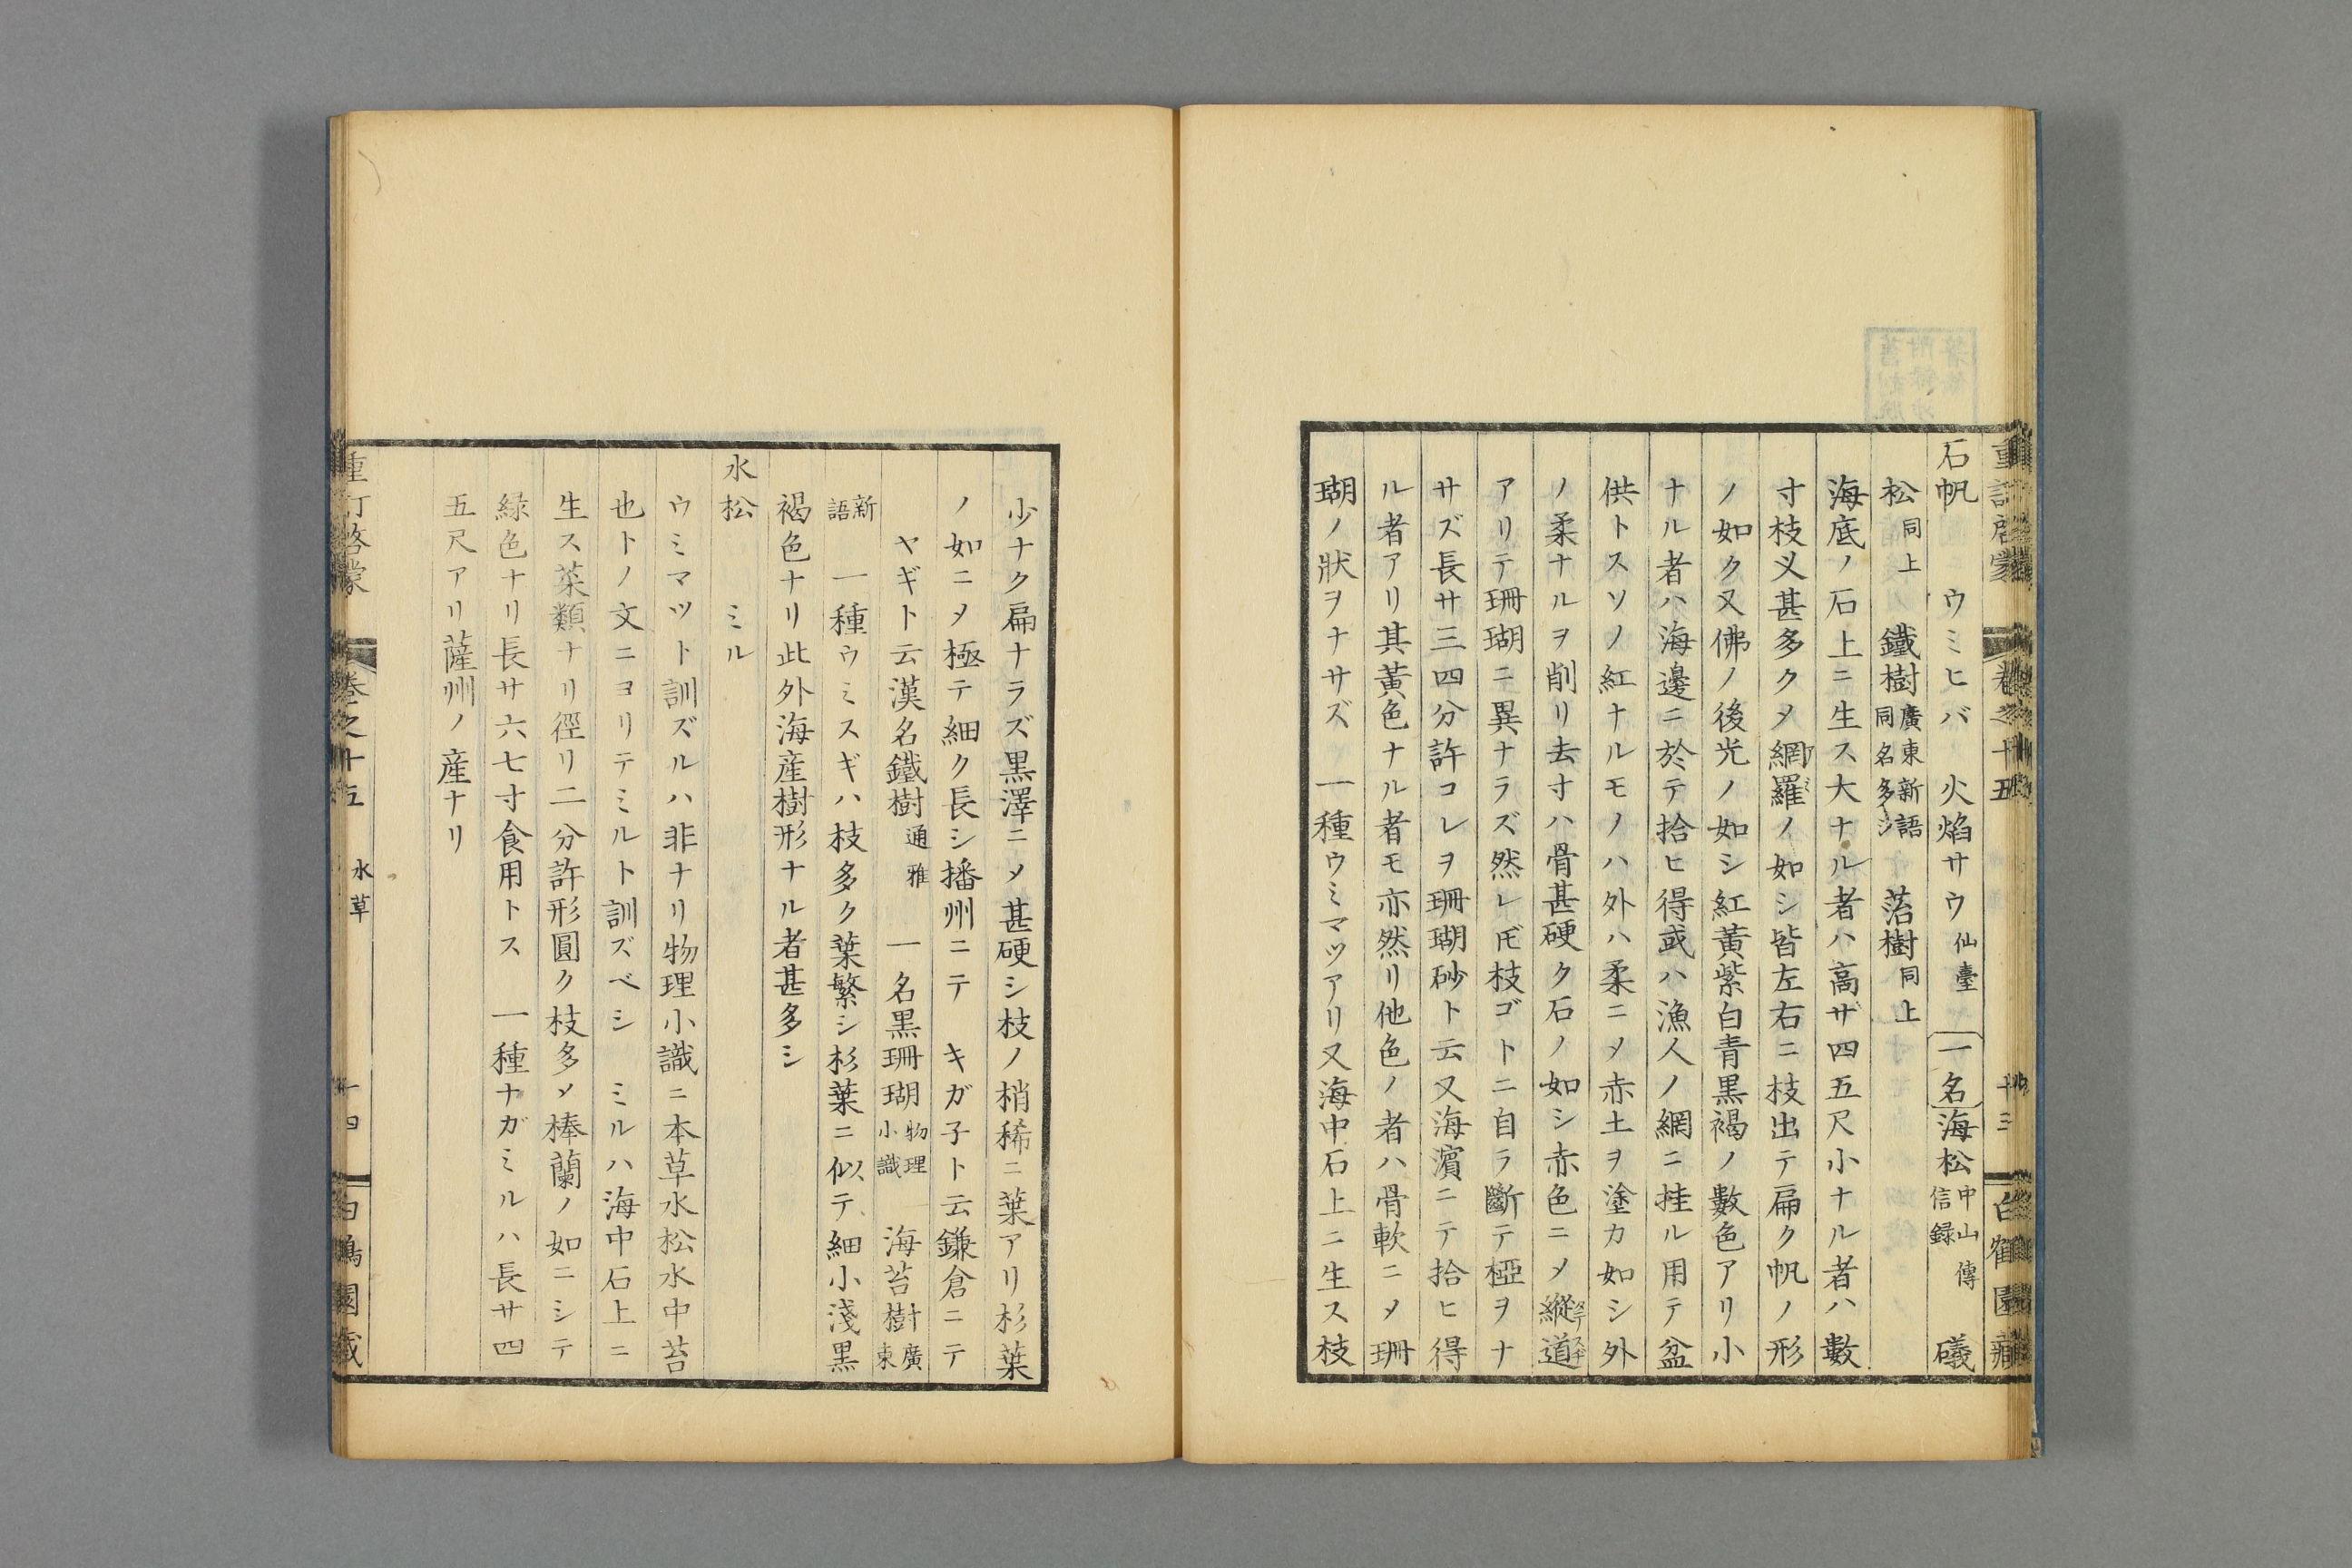 石帆　ウミヒバ　火焰サウ仙臺　一名海松中山傳信録　礒
松同上　鐵樹廣東新語同名多シ　落樹同上
海底ノ石上ニ生ス大ナル者ハ高サ四五尺小ナル者ハ數
寸枝义甚多クメ網羅ノ如シ皆左右ニ枝出テ扁ク帆ノ形
ノ如ク又佛ノ後光ノ如シ紅黃紫白青黒褐ノ數色アリ小
ナル者ハ海邊ニ於テ拾ヒ得或ハ漁人ノ網ニ挂ル用テ盆
供トスソノ紅ナルモノハ外ハ柔ニメ赤土ヲ塗カ如シ外
ノ柔ナルヲ削リ去寸ハ骨甚硬ク石ノ如シ赤色ニメ縱道
アリテ珊瑚ニ異ナラズ然レ𪜈枝ゴトニ自ラ斷テ極ヲナ
サズ長サ三四分許コレヲ珊瑚砂ト云又海濱ニテ拾ヒ得
ル者アリ其黃色ナル者モ亦然リ他色ノ者ハ骨軟ニメ珊
瑚ノ狀ヲナサズ　一種ウミマツアリ又海中石上ニ生ス枝
少ナク扁ナラズ黒澤ニメ甚硬シ枝ノ梢稀ニ葉アリ杉葉
ノ如ニメ極テ細ク長シ播州ニテ　キガ子ト云鎌倉ニテ
ヤギト云漢名鐵樹通雅　一名黒珊瑚物理小識　海苔樹廣東
新語　一種ウミスギハ枝多ク葉繁シ杉葉ニ似テ細小淺黒
褐色ナリ此外海産樹形ナル者甚多シ
水松　ミル
ウミマツト訓ズルハ非ナリ物理小識ニ本草水松水中苔
也トノ文ニヨリテミルト訓ズベシ　ミルハ海中石上ニ
生ス菜類ナリ徑リ二分許形圓ク枝多メ棒蘭ノ如ニシテ
緑色ナリ長サ六七寸食用トス　一種ナガミルハ長サ四
五尺アリ薩州ノ産ナリ
重訂啓蒙　卷之十五　水草　十四